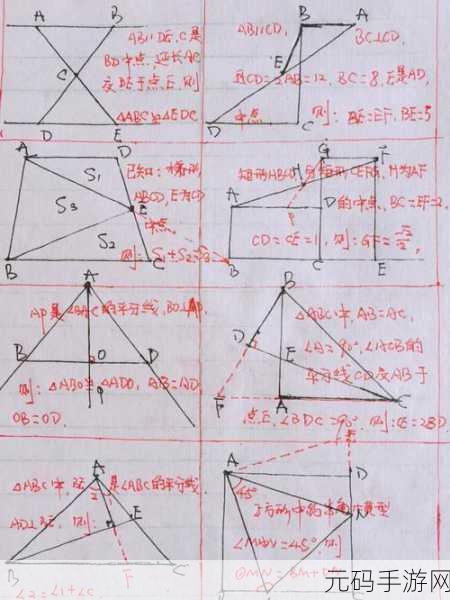 A B
AB∥DE, C是
BD中点, 延长AC
C
交DE于点E, 则
△ABC≌△EDC
D E
B A
AB∥CD,
BC⊥CD,
E
且CD=2AB=12, BC=8, E是AD
中点
则: BE=EF, BE=5
D C
A D
S₁
已知: 梯形
ABCD, E为CD
中点
S₃
E
S₂
则: S₁+S₂=S₃
B C
G F
矩形ABCD与矩形CEFG, H为AF
H
A
D的中点, BC=EF=2,
CD=CE=1, 则: GF=
B C E
A
AP是∠BAC的平分线, BD⊥AP,
B O D
则: △ABO≌△ADO, AB=AD,
OB=OD.
P
B
△ABC中, AB=AC,
D
∠A=90°, ∠ACB的
E
平分线CD交AB于
F A C
点E, ∠BDC=90°, 则: CE=2BD.
A
△ABC中,
是∠ABC的平分线
2
E
则:
B F C
∠2=∠1+∠C.
A D
45°
正方形中的
∠MAN=45° 则
①MN=BM+DN
元码手游网